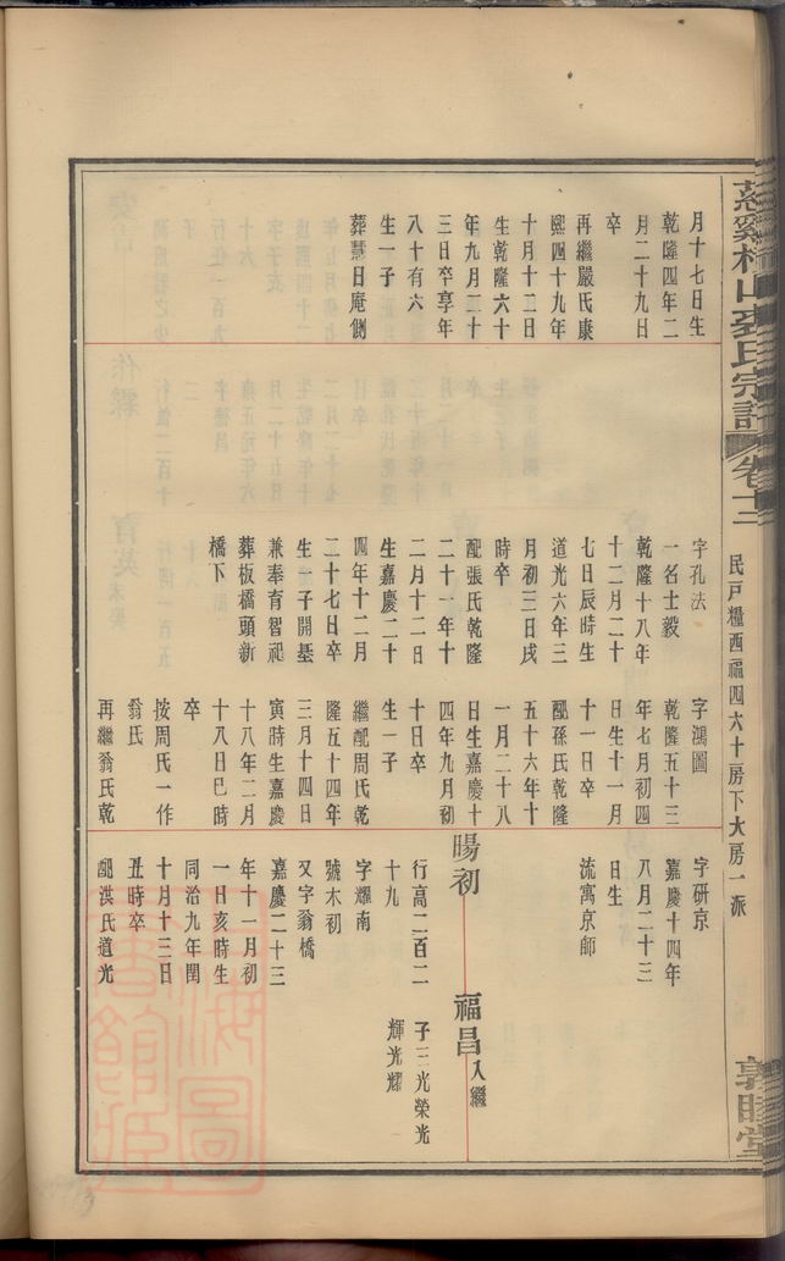 慈谿橫山裘氏宗譜
卷十二
民戸糧西福四六十房下大房一派
敦睦堂
月十七日生
乾隆四年二
月二十九日
卒
再繼嚴氏康
熙四十九年
十月十二日
生乾隆六十
年九月二十
三日卒享年
八十有六
生一子
葬慧日庵側
字孔法
一名士毅
乾隆十八年
十二月二十
七日辰時生
道光六年三
月初三日戌
時卒
配張氏乾隆
二十一年十
二月十二日
生嘉慶二十
四年十二月
二十七日卒
生一子開基
兼奉育智祀
葬板橋頭新
橋下
字鴻圖
乾隆五十三
年七月初四
日生十一月
十一日卒
配孫氏乾隆
五十六年十
一月二十八
日生嘉慶十
四年九月初
十日卒
生一子
繼配周氏乾
隆五十四年
三月十四日
寅時生嘉慶
十八年二月
十八日巳時
卒
按周氏一作
翁氏
再繼翁氏乾
字研京
嘉慶十四年
八月二十三
日生
流寓京師
暘初
行高二百二
十九
字耀南
號木初
又字翁橋
嘉慶二十三
年十一月初
一日亥時生
同治九年閏
十月十三日
丑時卒
配洪氏道光
福昌入繼
子三光榮光
輝光耀